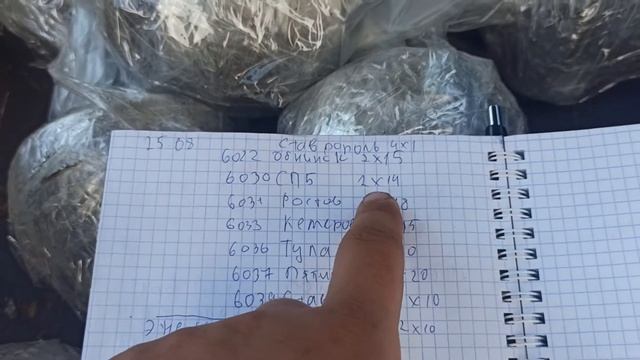 15 08 Ставрополь 4х1
6022 Обнинск 2х15
6030 СПб 1х14
6031 Ростов 8
6033 Кемеро 5
6036 Тула 0
6037 Пяти 20
6039 х10
2х10